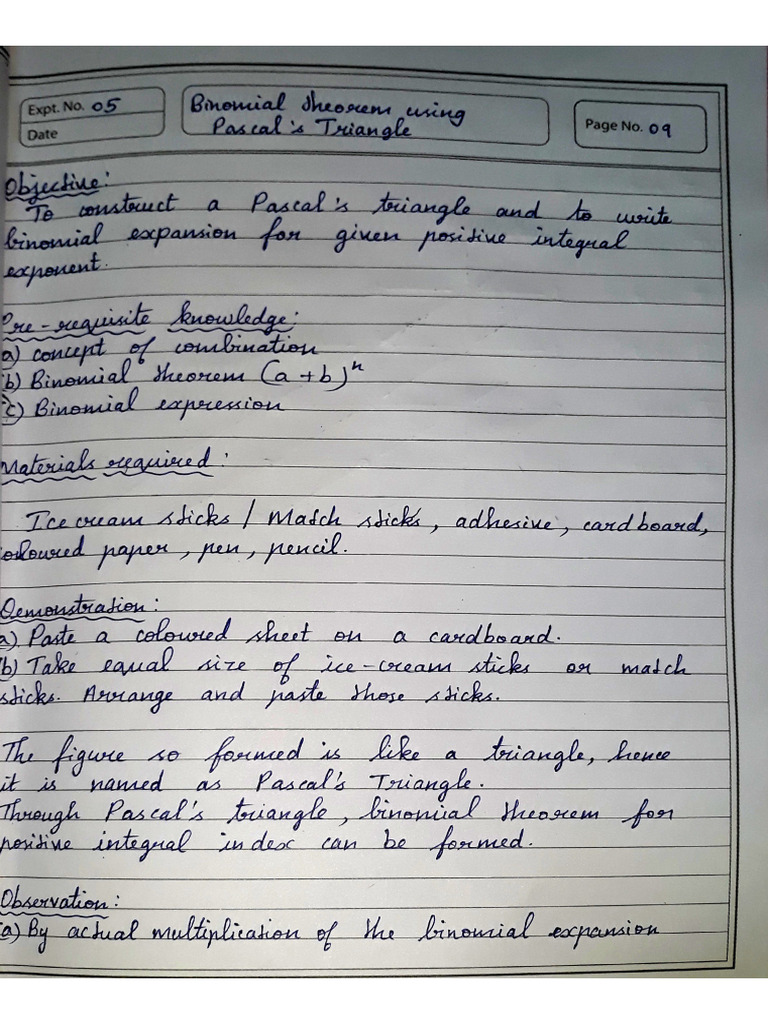 Expt. No. 05
Date
Binomial theorem using
Pascal's Triangle
Page No. 09
Objective:
To construct a Pascal's triangle and to write
binomial expansion for given positive integral
exponent.
Pre-requisite knowledge:
a) concept of combination
(b) Binomial theorem (a+b)ⁿ
(c) Binomial expression
Materials required:
Ice cream sticks / Match sticks, adhesive, cardboard,
coloured paper, pen, pencil.
Demonstration:
a) Paste a coloured sheet on a cardboard.
(b) Take equal size of ice-cream sticks or match
sticks. Arrange and paste those sticks.
The figure so formed is like a triangle, hence
it is named as Pascal's Triangle.
Through Pascal's triangle, binomial theorem for
positive integral index can be formed.
Observation:
(a) By actual multiplication of the binomial expansion